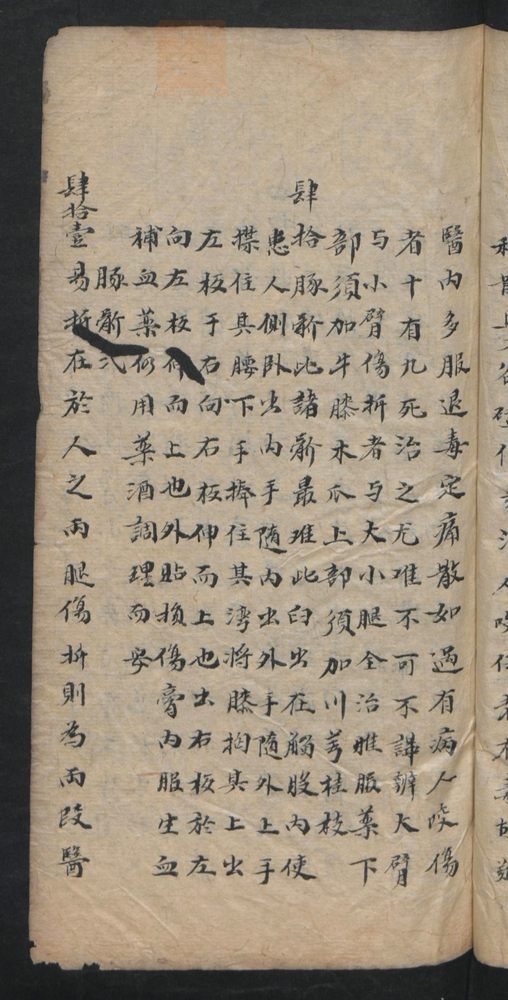 醫內多服退毒定痛散如過有病人咬傷
者十有九死治之尤难不可不詳辨大臂
与小臂傷折者与大小腿全治雅服藥下
部須加牛膝木瓜上部須加川芎桂枝
肆拾豚斷此諸斷最难此臼出在觸股內使
患人側卧出內手随內出外手随外上手
㩒住其腰下手捧住其湾将膝掬其上出
左板于右向右板伸而上也出右板於左
向左板仰而上也外貼損傷膏內服生血
補血藥仍用藥酒調理而安
豚斷式
肆拾壹易折在於人之两腿傷折則為两段醫